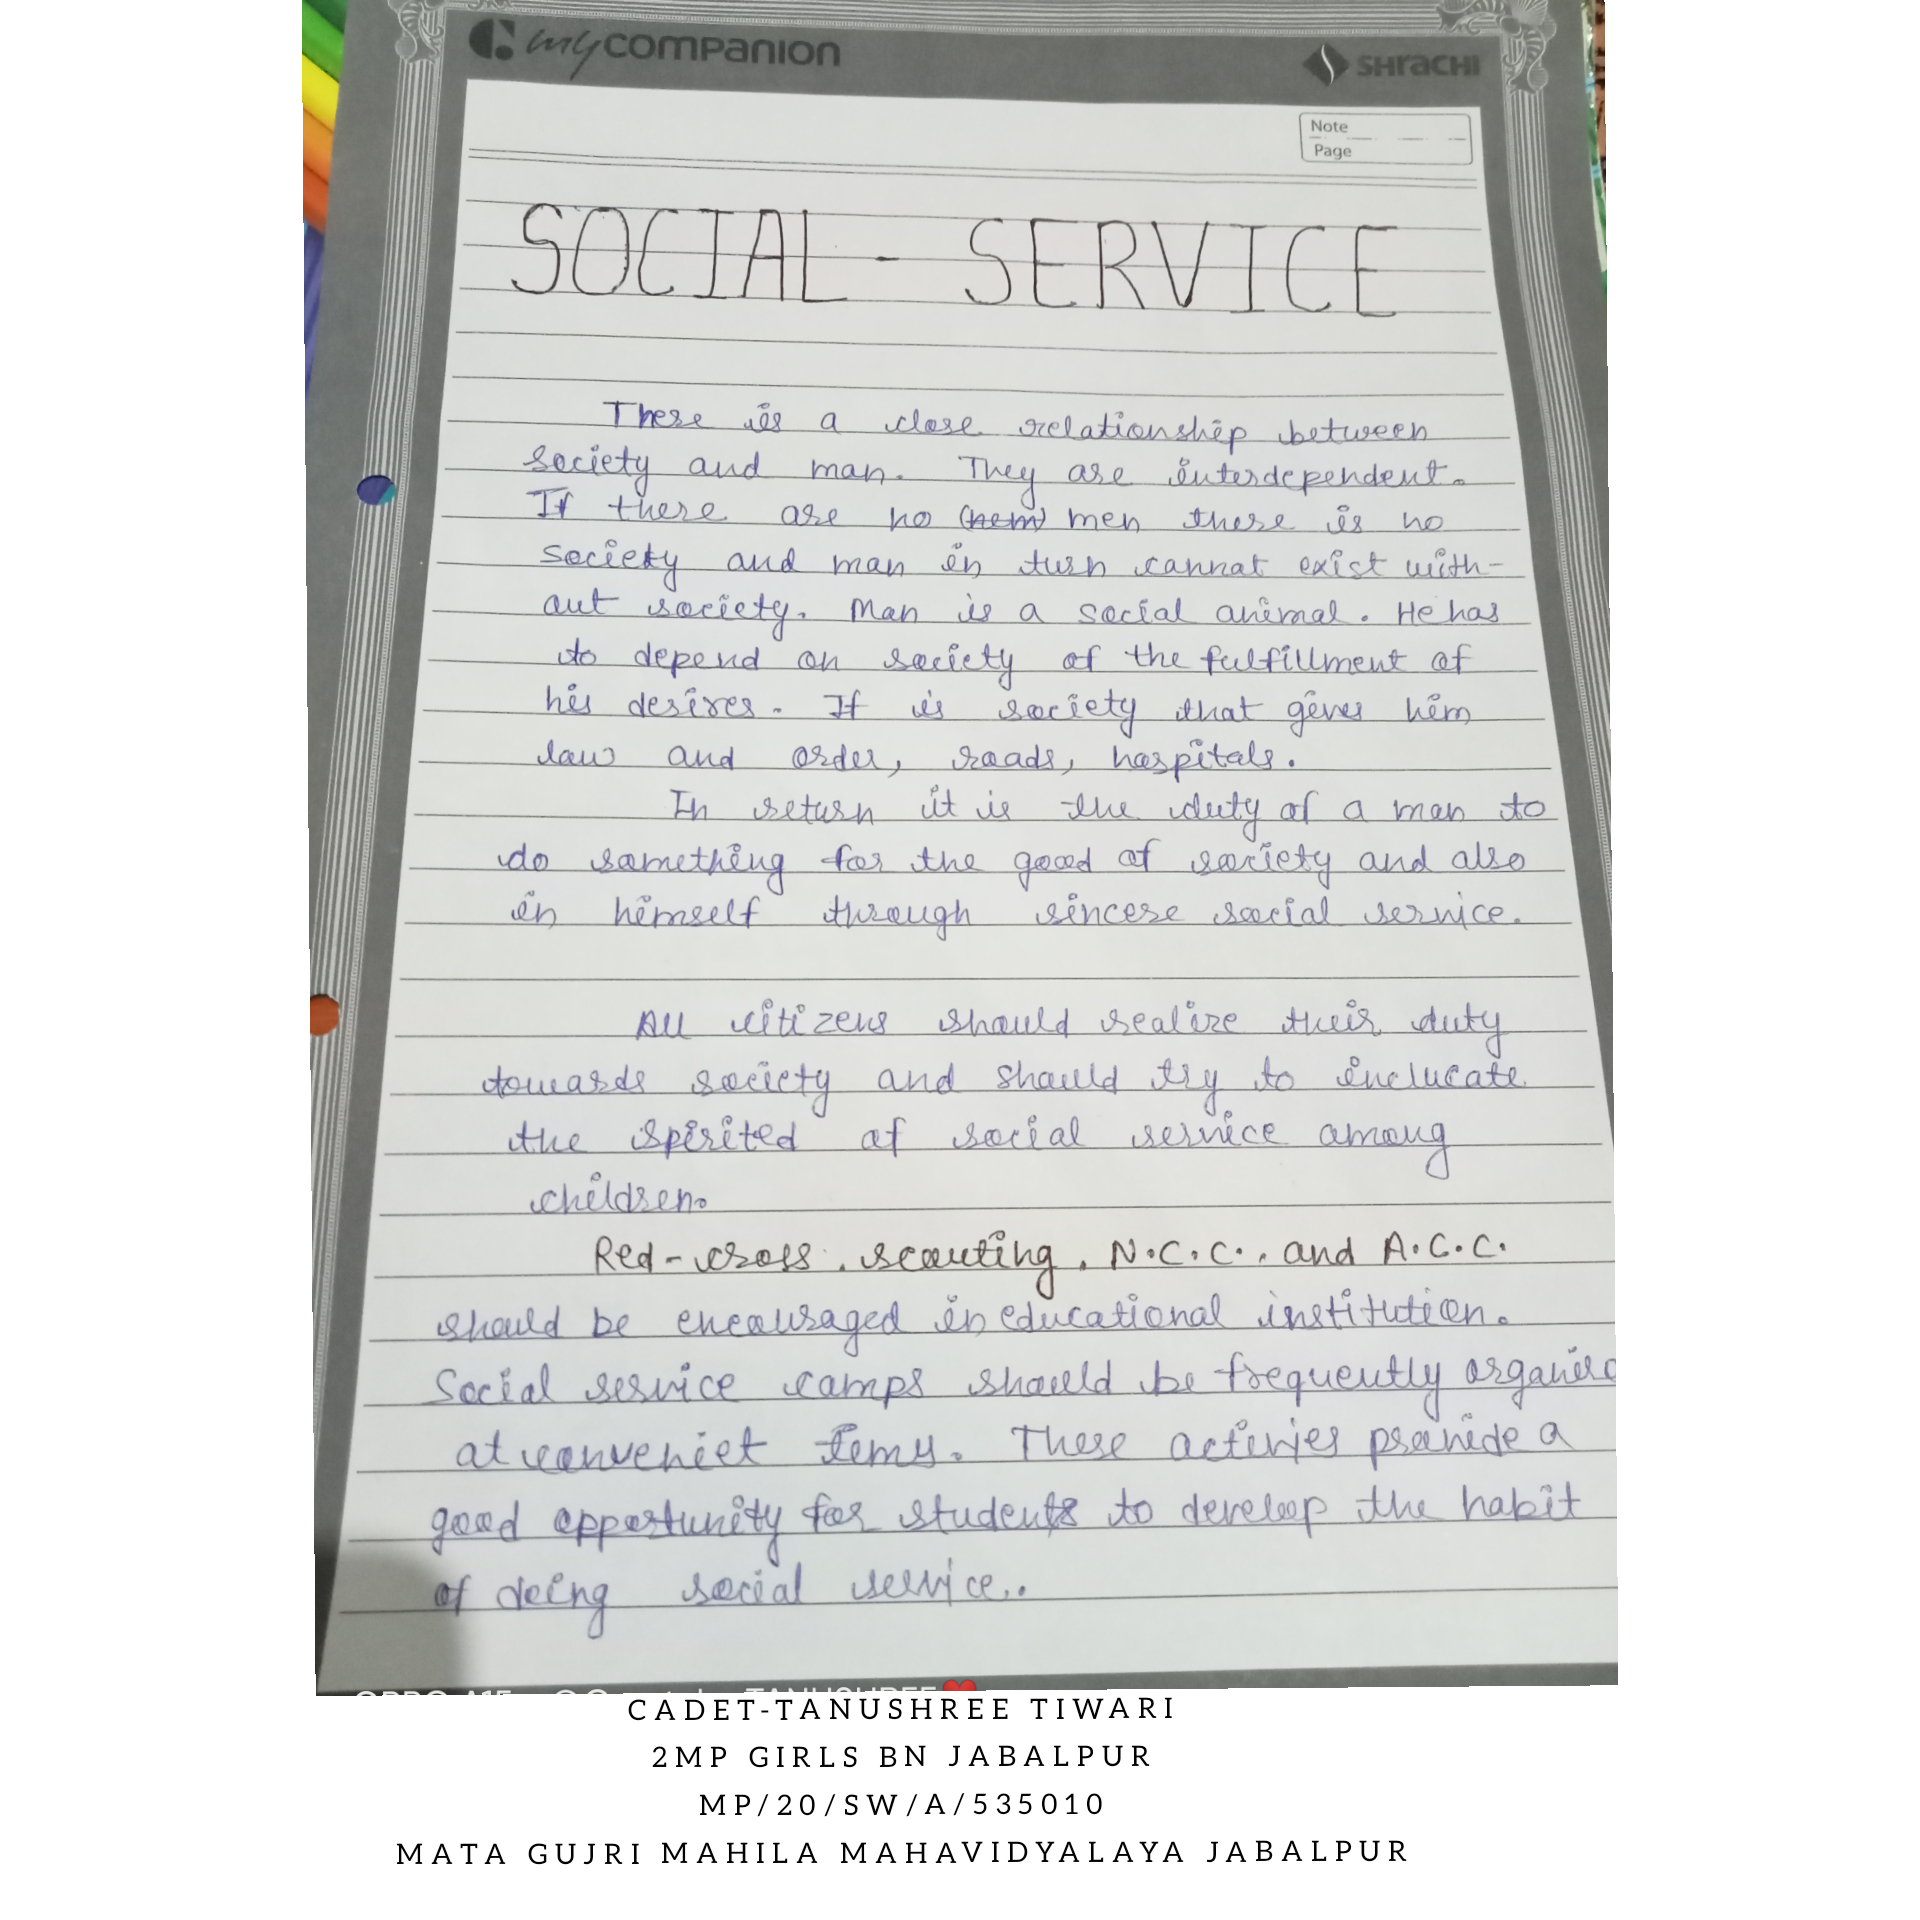 my companion
SHRACHI
Note
Page
SOCIAL - SERVICE
There is a close relationship between
society and man. They are interdependent.
If there are no (nem) men there is no
society and man in turn cannot exist with-
out society. Man is a social animal. He has
to depend on society of the fulfillment of
his desires. If is society that gives him
law and order, roads, hospitals.
In return it is the duty of a man to
do something for the good of society and also
in himself through sincere social service.
All citizens should realize their duty
towards society and should try to inclucate
the spirited of social service among
children.
Red-cross, scouting, N.C.C., and A.C.C.
should be encouraged in educational institution.
Social service camps should be frequently
at conveniet These provide a
good opportunity for students to develop the habit
of doing social service..
CADET-TANUSHREE TIWARI
2MP GIRLS BN JABALPUR
MP/20/SW/A/535010
MATA GUJRI MAHILA MAHAVIDYALAYA JABALPUR